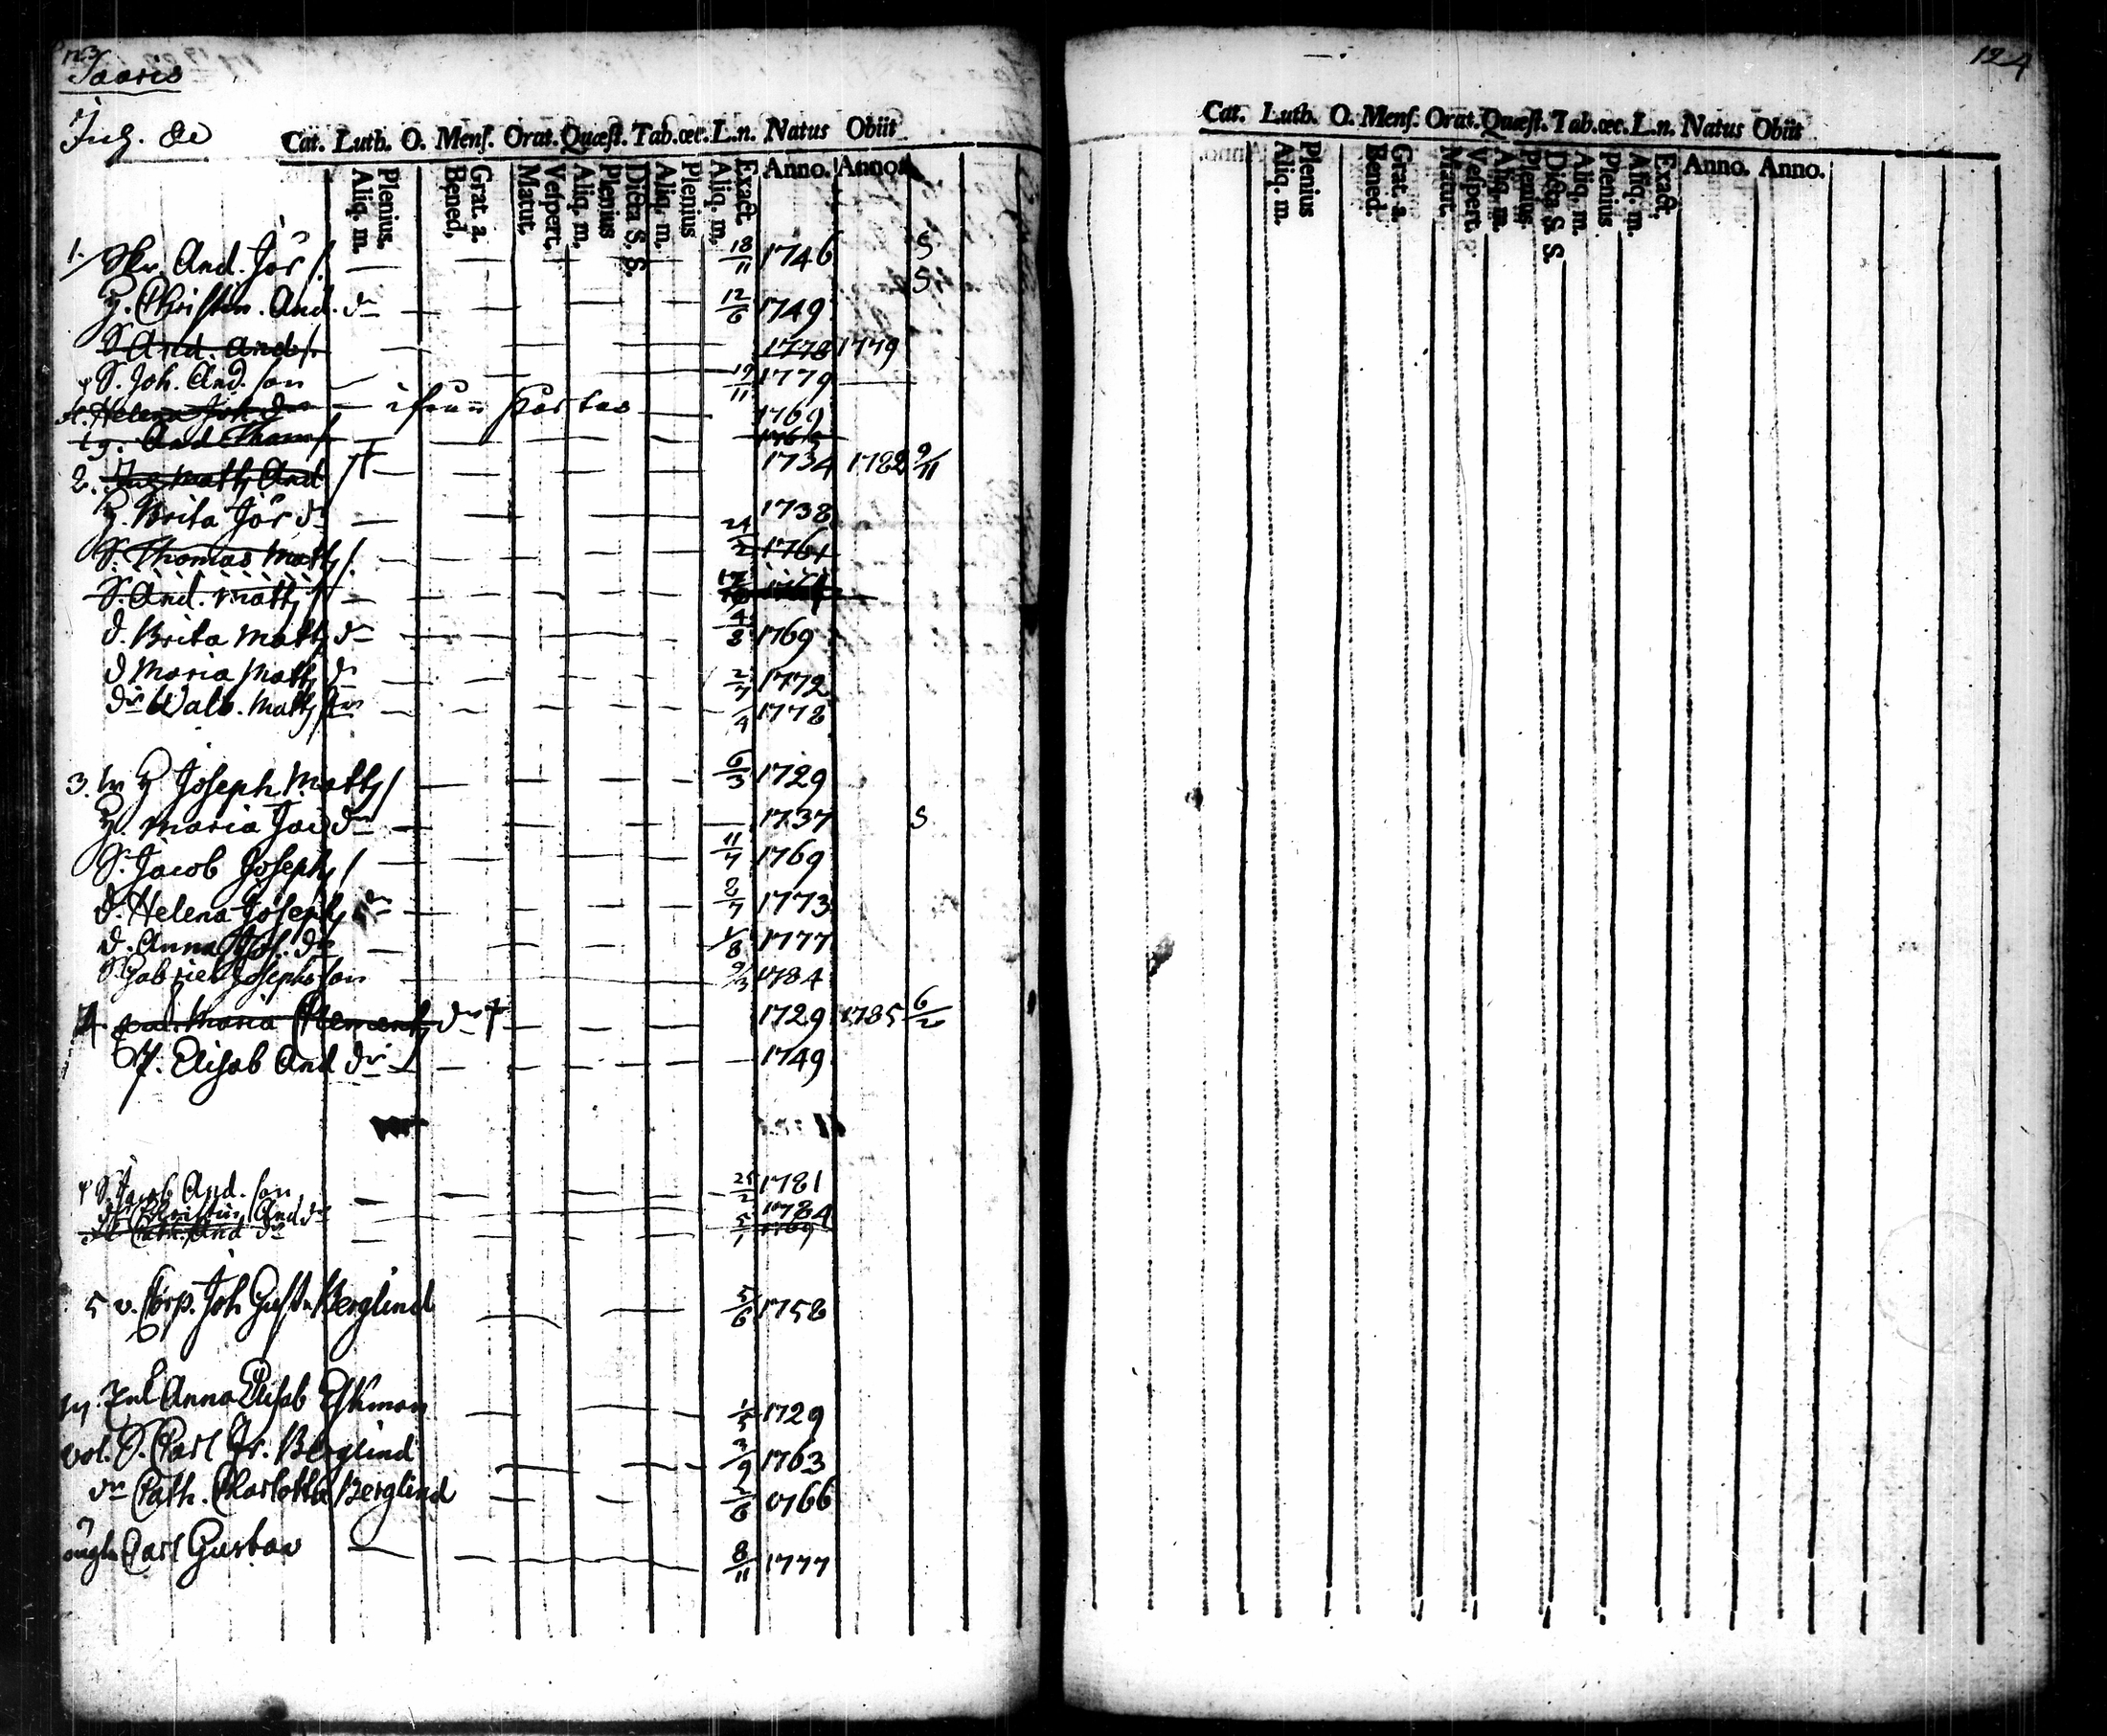 123
Saaris
Cat. Luth. O. Mens. Orat. Quæst. Tab. œc. L.n. Natus Obiit
Plenius. Aliq. m. Grat. a. Bened. Matut. Vespert. Aliq. m. Plenius Dicta S. S. Aliq. m. Plenius Aliq. m. Exact. Anno. Anno.
1. And. Jörs. 18/11 1746 S
H. Christin. And. dr 12/6 1749 S
S And. Ands. 1778 1779
S. Joh. And. son 19/11 1779
Helena Joh. dr 1769
And Thoms
2. Matts And 1734 1782 9/11
H. Brita Jör dr 1738
S. Thomas Matts. 24/2 1761
S. And. Matts
d. Brita Matts dr 4/8 1769
d Maria Matts dr 2/7 1772
dr Walb. Matts dr /4 1778
3. Joseph Matts 6/3 1729
H. Maria Jac dr 1737 S
S. Jacob Josephs 11/7 1769
d. Helena Josephs dr 2/7 1773
d. Anna Jos. dr 1/8 1777
S Gabriel Josephsson 9/3 1784
4. Maria Clements dr 1729 1785 6/2
Elisab And dr 1749
S. Jacob And. son 25/2 1781
dr Christin And dr 1784
Cath. And dr 5/1
5 v. Corp. Joh Gust. Berglind 5/6 1758
Anna Elisab 1/5 1729
vol. S. Carl Fr. Berglind 3/9 1763
dr Cath. Charlotta Berglind 2/6 1766
Carl Gustav 8/11 1777
124
Cat. Luth. O. Mens. Orat. Quæst. Tab. œc. L.n. Natus Obiit
Plenius Aliq. m. Grat. a. Bened. Matut. Vespert. Aliq. m. Plenius Dicta S. S. Aliq. m. Plenius Aliq. m. Exact. Anno. Anno.